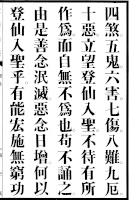 四煞五鬼六害七傷八難九厄
十惡立望登仙入聖不待有所
作為面自無不為也苟不誦之
由是善念泯滅惡念日增何以
登仙入聖乎有能宏施無窮功